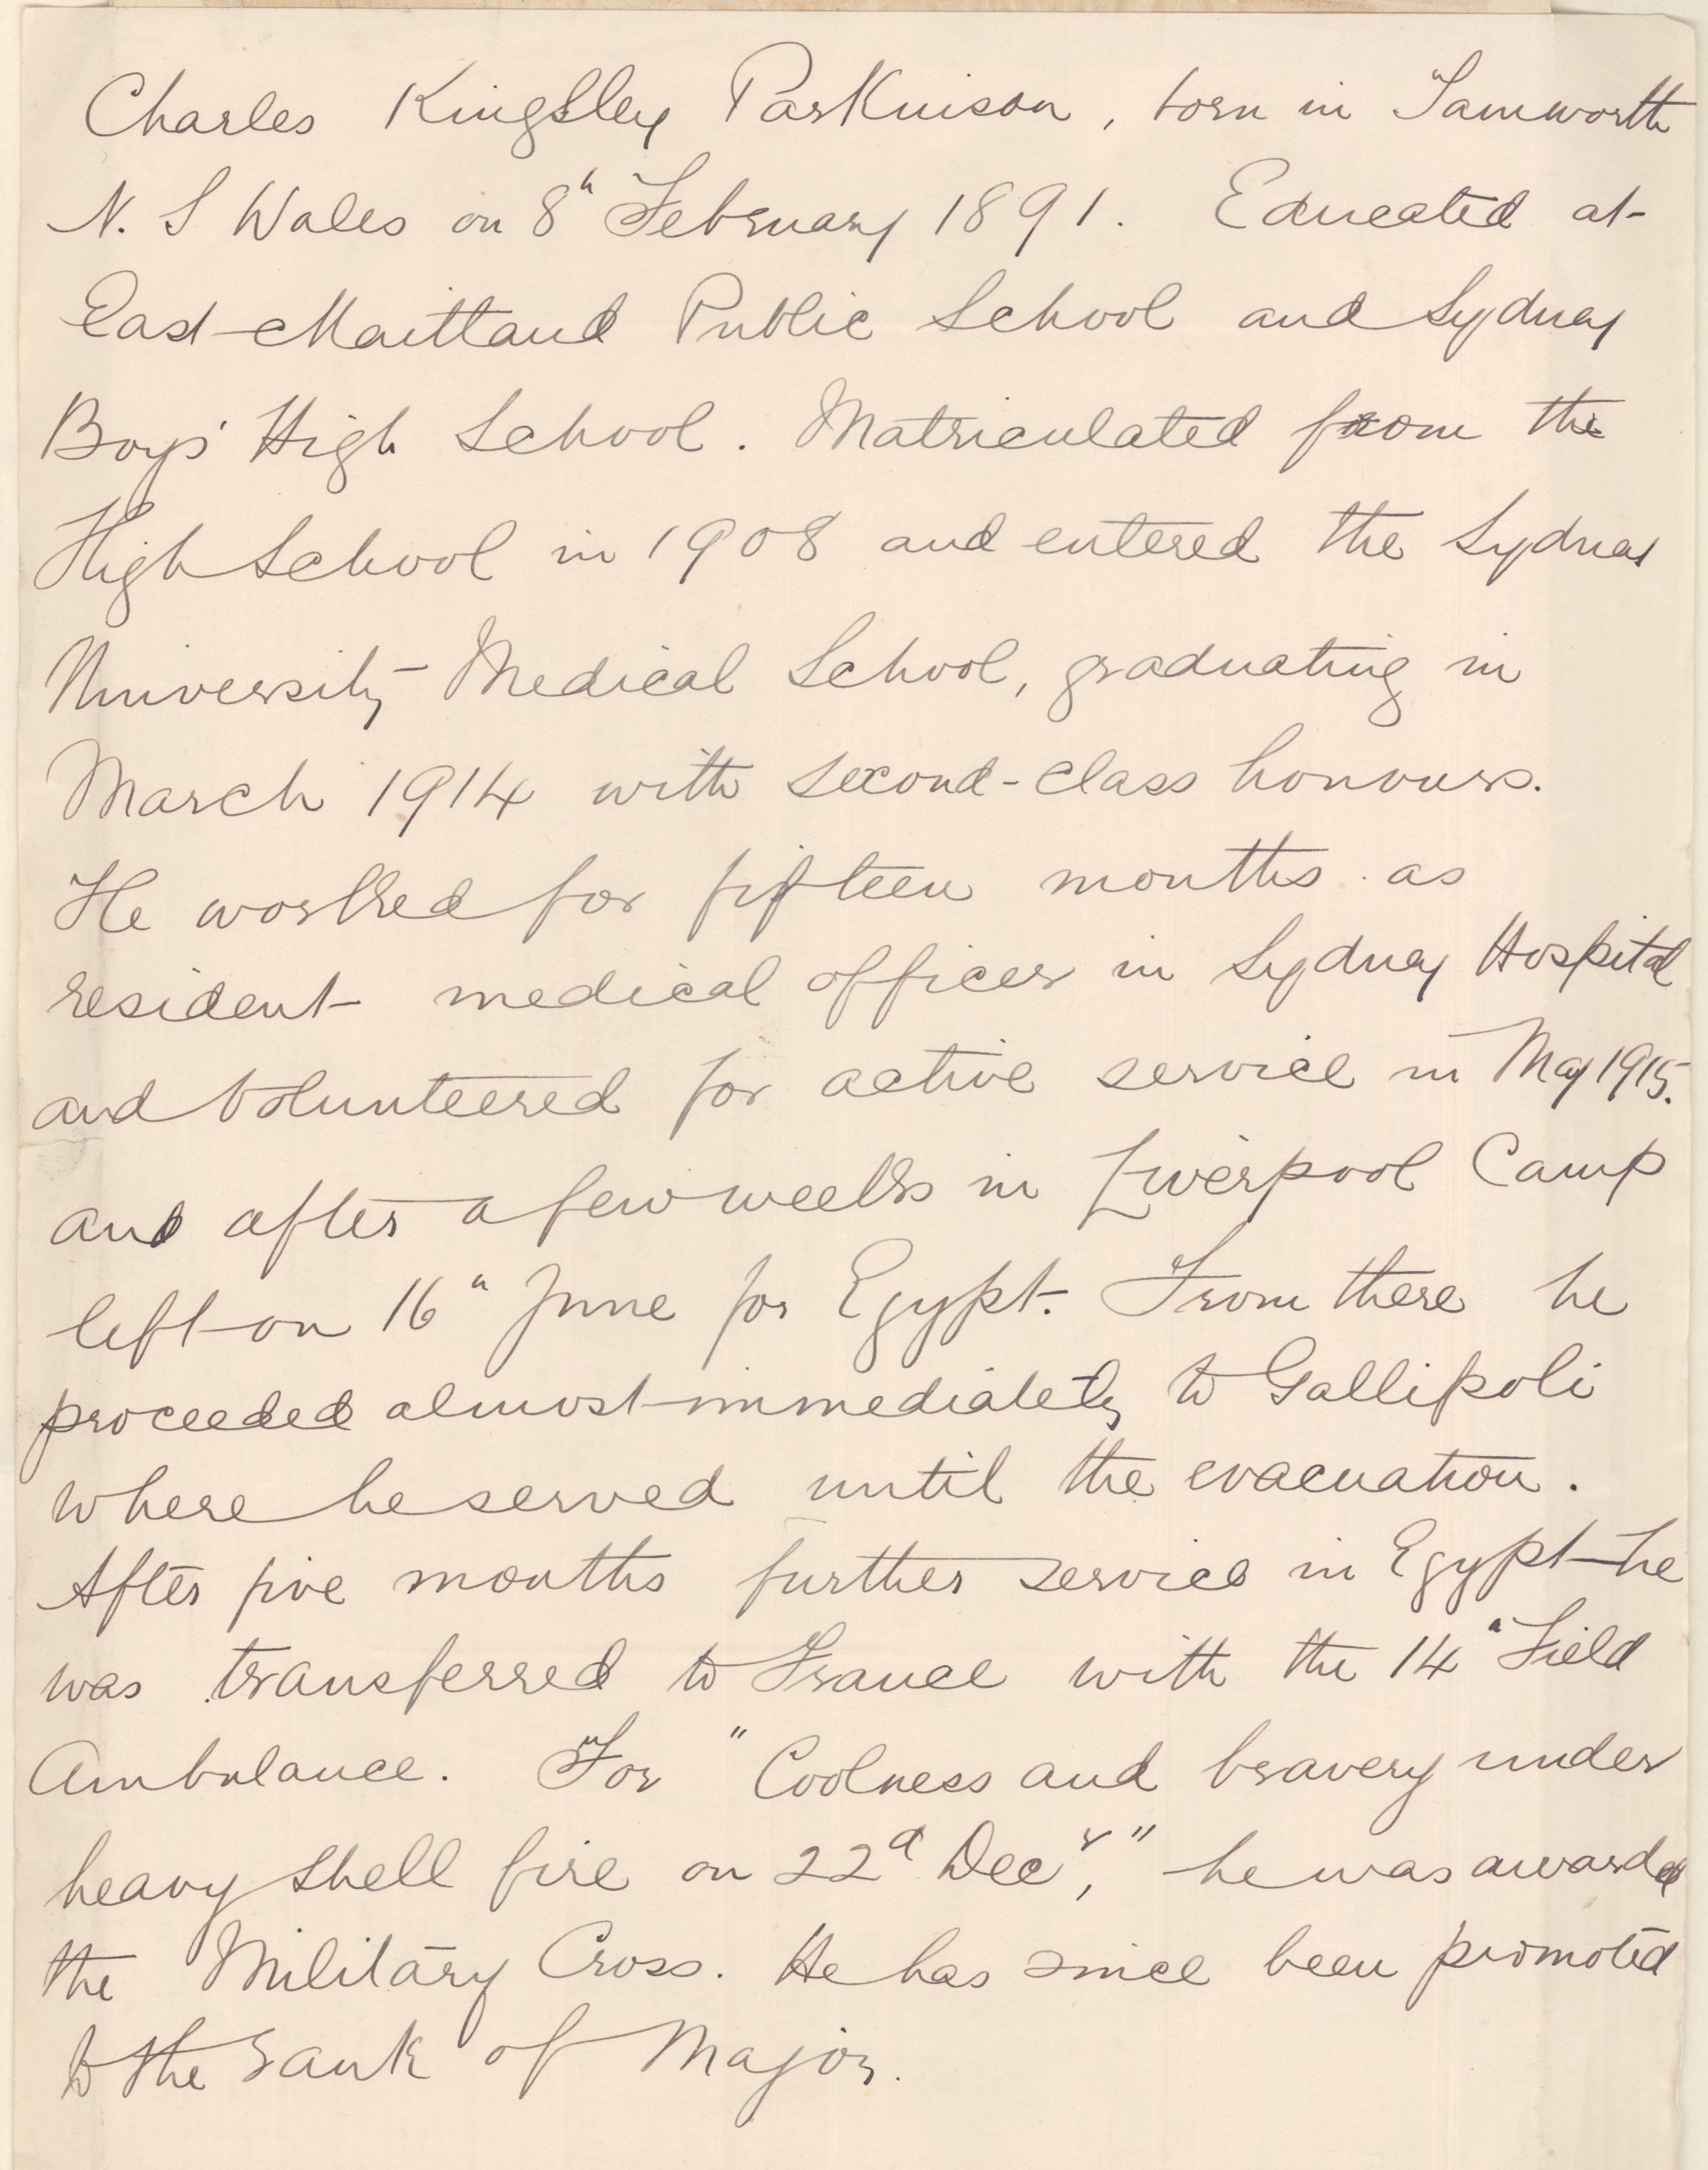 Charles Kingsley Parkinson, born in Tamworth
N. S Wales on 8th February 1891. Educated at
East Maitland Public School and Sydney
Boys' High School. Matriculated from the
High School in 1908 and entered the Sydney
University Medical School, graduating in
March 1914 with second-class honours.
He worked for fifteen months as
resident medical officer in Sydney Hospital
and volunteered for active service in May 1915.
and after a few weeks in Liverpool Camp
left on 16th June for Egypt. From there he
proceeded almost immediately to Gallipoli
where he served until the evacuation.
After five months further service in Egypt he
was transferred to France with the 14th Field
Ambulance. For "Coolness and bravery under
heavy shell fire on 22d Decr," he was awarded
the Military Cross. He has since been promoted
to the rank of Major.